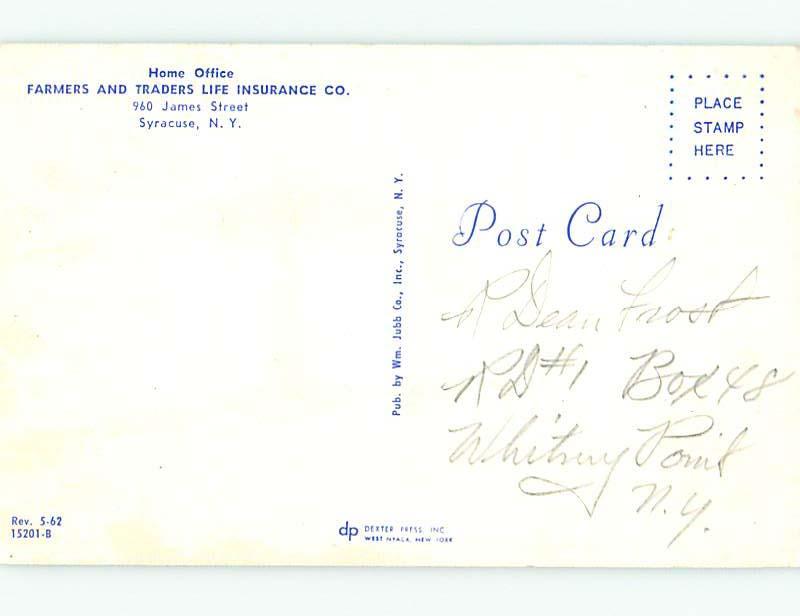 Home Office
FARMERS AND TRADERS LIFE INSURANCE CO.
960 James Street
Syracuse, N. Y.
PLACE
STAMP
HERE
Pub. by Wm. Jubb Co., Inc., Syracuse, N. Y.
Post Card
R Dean Frost
RD#1 Box 48
Whitney Point
N.Y.
Rev. 5-62
15201-B
dp DEXTER PRESS, INC.
WEST NYACK, NEW YORK